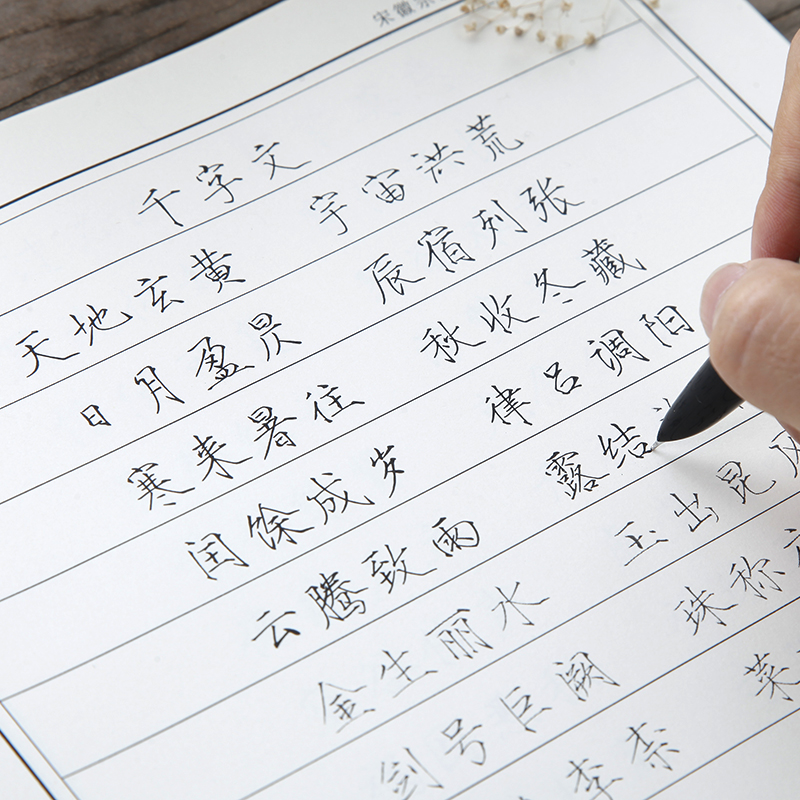 宋徽宗
千字文
天地玄黄 宇宙洪荒
日月盈昃 辰宿列张
寒来暑往 秋收冬藏
闰馀成岁 律吕调阳
云腾致雨 露结
金生丽水 玉出昆冈
剑号巨阙 珠称夜
李柰 菜